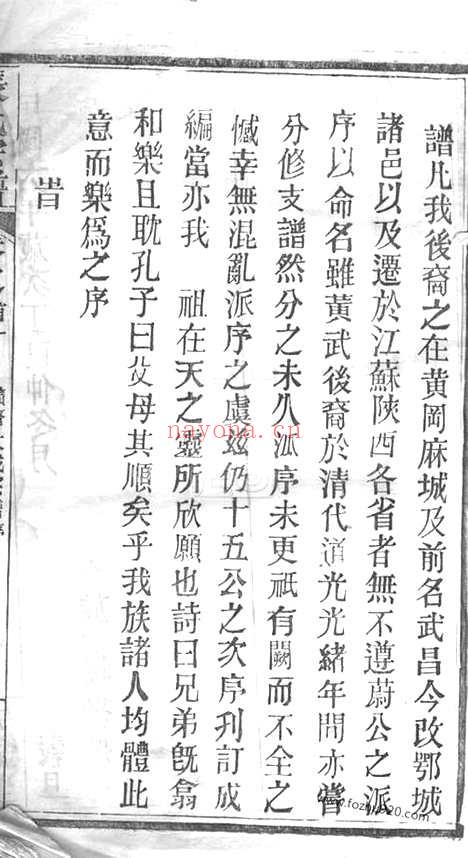 譜凡我後裔之在黄岡麻城及前名武昌今改鄂城
諸邑以及遷於江蘇陝西各省者無不遵蔚公之派
序以命名雖黄武後裔於清代道光光緒年間亦嘗
分修支譜然分之未久派序未更祇有闕而不全之
憾幸無混亂派序之虞茲仍十五公之次序刊訂成
編當亦我　祖在天之靈所欣願也詩曰兄弟既翕
和樂且耽孔子曰父母其順矣乎我族諸人均體此
意而樂爲之序
旹
nayona.cn
www.fozhu920.com